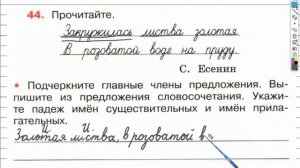 44. Прочитайте.
Закружилась листва золотая
В розоватой воде на пруду
С. Есенин
• Подчеркните главные члены предложения. Вы-
пишите из предложения словосочетания. Укажи-
те падеж имён существительных и имён прила-
гательных.
И. И.
Золотая листва, в розоватой в